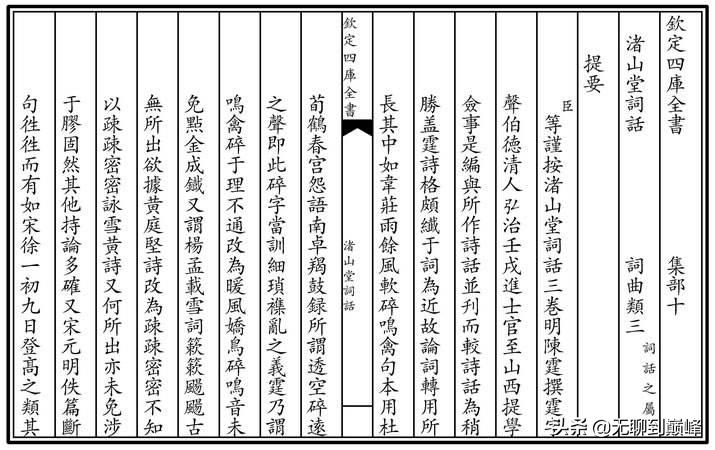 欽定四庫全書 集部十
渚山堂詞話 詞曲類三 詞話之屬
提要
臣等謹按渚山堂詞話三卷明陳霆撰霆字
聲伯德清人弘治壬戌進士官至山西提學
僉事是編與所作詩話並刊而較詩話為稍
勝盖霆詩格頗纖于詞為近故論詞轉用所
長其中如韋莊雨餘風軟碎鳴禽句本用杜
欽定四庫全書 渚山堂詞話
荀鶴春宫怨語南卓羯鼓録所謂透空碎遠
之聲即此碎字當訓細瑣襍亂之義霆乃謂
鳴禽碎于理不通改為暖風嬌鳥碎鳴音未
免點金成鐵又謂楊孟載雪詞簌簌颺颺古
無所出欲據黄庭堅詩改為疎疎密密不知
以疎疎密密詠雪黄詩又何所出亦未免涉
于膠固然其他持論多確又宋元明佚篇斷
句徃徃而有如宋徐一初九日登高之類其
头条 @无聊到巅峰